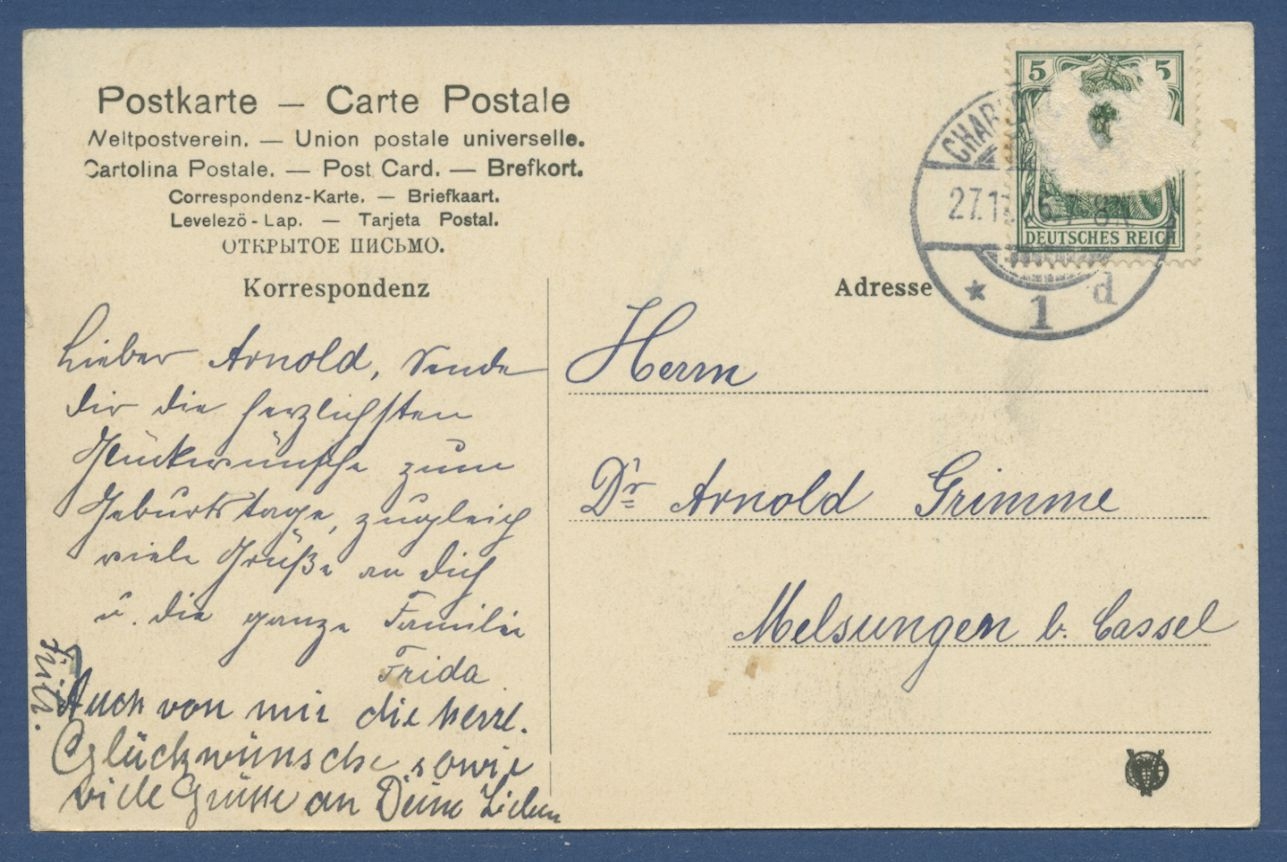 Postkarte — Carte Postale
Weltpostverein. — Union postale universelle.
Cartolina Postale. — Post Card. — Brefkort.
Correspondenz-Karte. — Briefkaart.
Levelező-Lap. — Tarjeta Postal.
ОТКРЫТОЕ ПИСЬМО.
Korrespondenz
Adresse
5 5
DEUTSCHES REICH
CHAR
27.1
* 1 d
Lieber Arnold, Sende
dir die herzlichsten
Glückwünsche zum
Geburtstage, zugleich
viele Grüße an dich
u. die ganze Familie
Frida
Auch von mir die herzl.
Glückwünsche sowie
viele Grüsse an Deine Lieben
Herrn
Dr Arnold Grimme
Melsungen b. Cassel